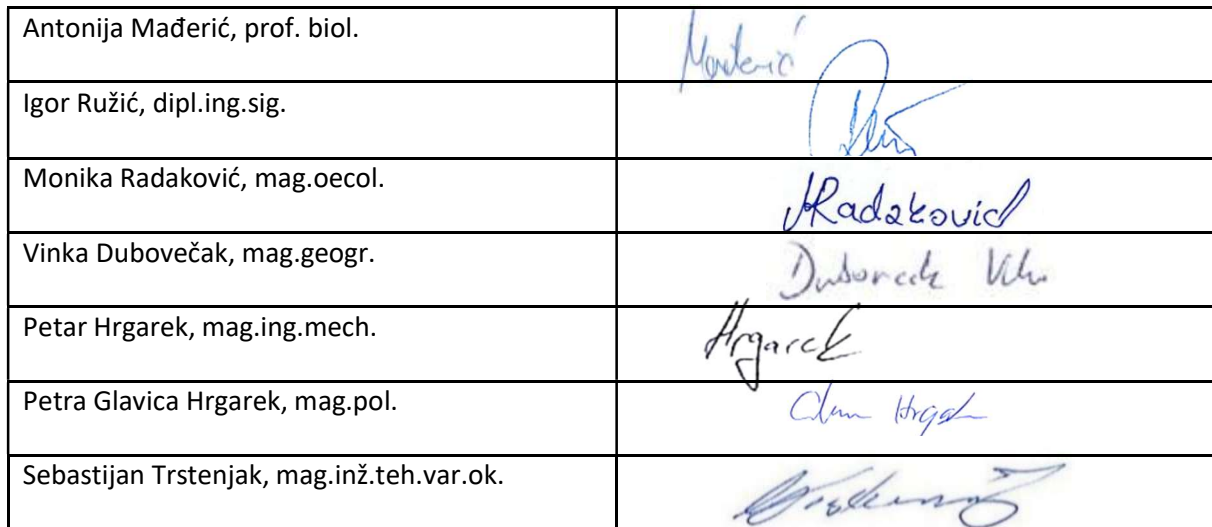 Antonija Mađerić, prof. biol.
Mađerić
Igor Ružić, dipl.ing.sig.
Monika Radaković, mag.oecol.
MRadaković
Vinka Dubovečak, mag.geogr.
Dubovečak
Petar Hrgarek, mag.ing.mech.
Hrgarek
Petra Glavica Hrgarek, mag.pol.
Sebastijan Trstenjak, mag.inž.teh.var.ok.